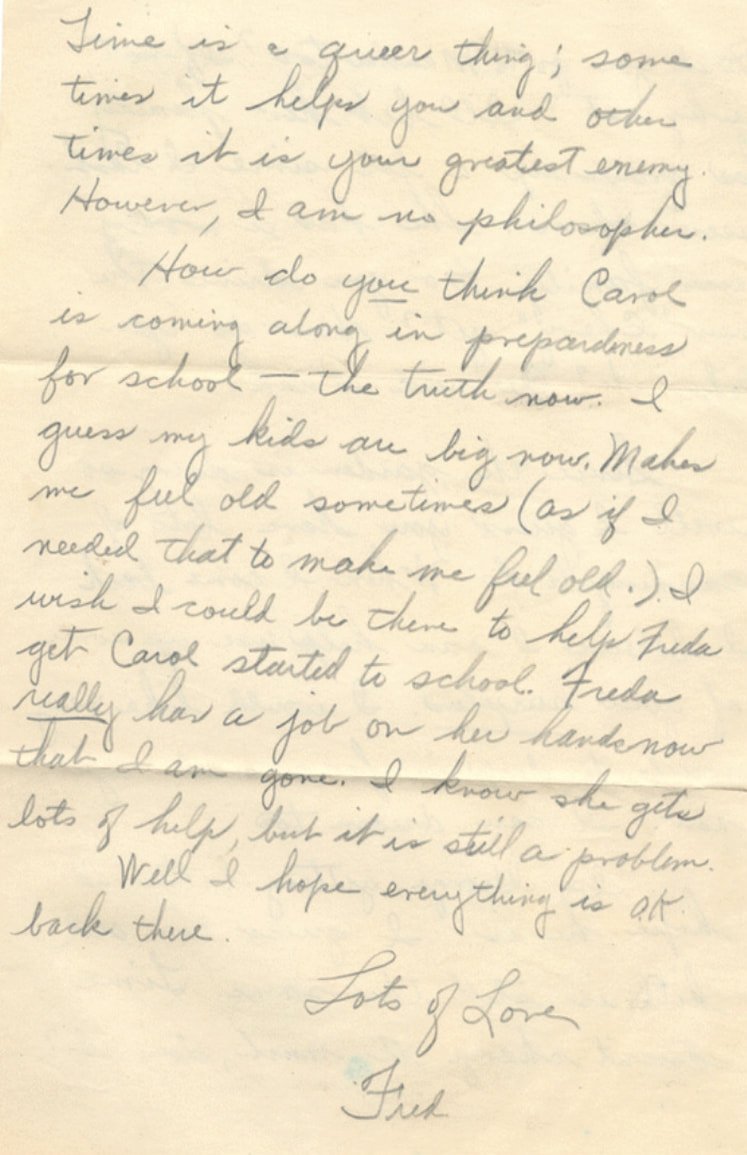 Time is a queer thing; some
times it helps you and other
times it is your greatest enemy.
However, I am no philosopher.
How do you think Carol
is coming along in prepardness
for school — the truth now. I
guess my kids are big now. Makes
me feel old sometimes (as if I
needed that to make me feel old.). I
wish I could be there to help Freda
get Carol started to school. Freda
really has a job on her hands now
that I am gone. I know she gets
lots of help, but it is still a problem.
Well I hope everything is O.K.
back there.
Lots of Love
Fred